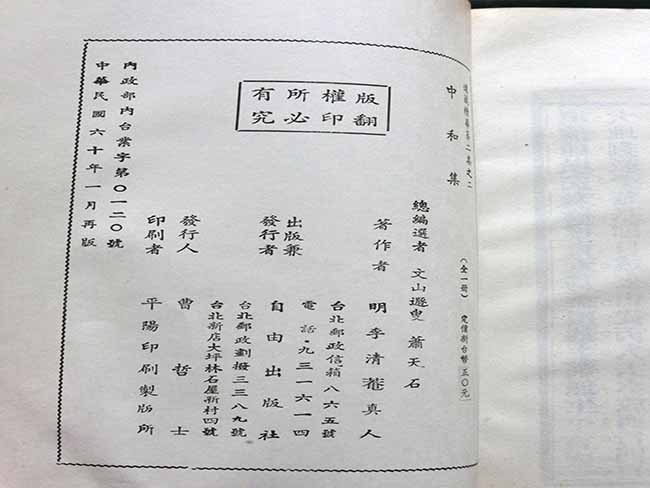 道藏精華第二集之二
中和集
(全一冊) 定價新台幣五〇元
總編選者 文山遯叟 蕭天石
著作者 明李清菴真人
台北郵政信箱八六五號
電話・九三一六一四
出版兼發行者 自由出版社
台北郵政劃撥三三八九號
台北新店大坪林石屋新村四號
發行人 曹哲士
印刷者 平陽印刷製版所
版權所有
翻印必究
內政部內台業字第〇一二〇號
中華民國六十年一月再版